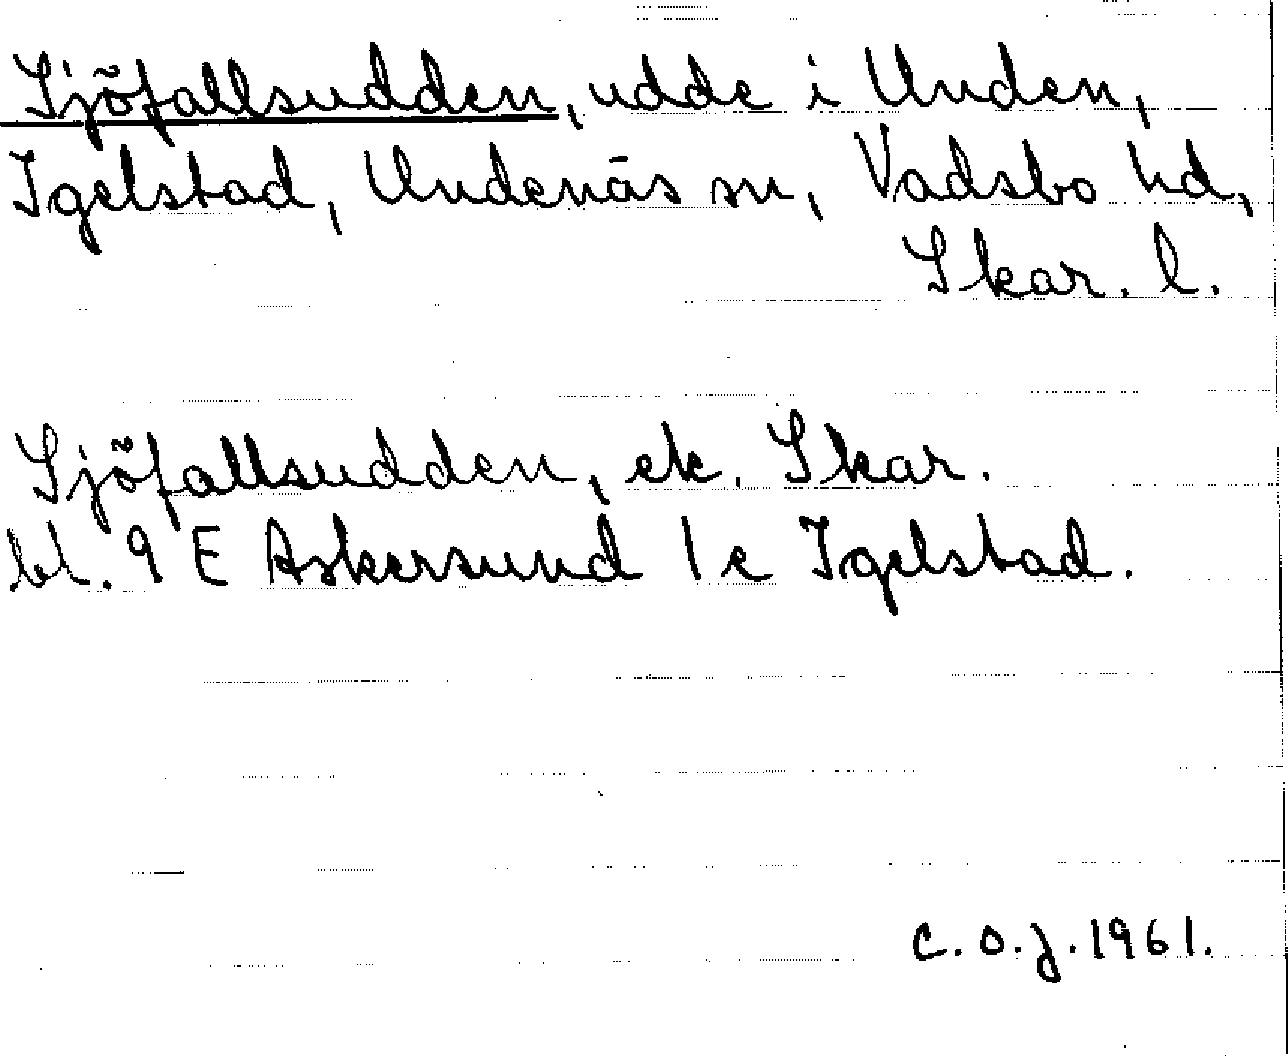 Sjöfallsudden, udde i Unden,
Igelstad, Undenäs sn, Vadsbo hd,
Skar. l.
Sjöfallsudden, ek. Skar.
bl. 9 E Askersund 1 c Igelstad.
C.O.J. 1961.